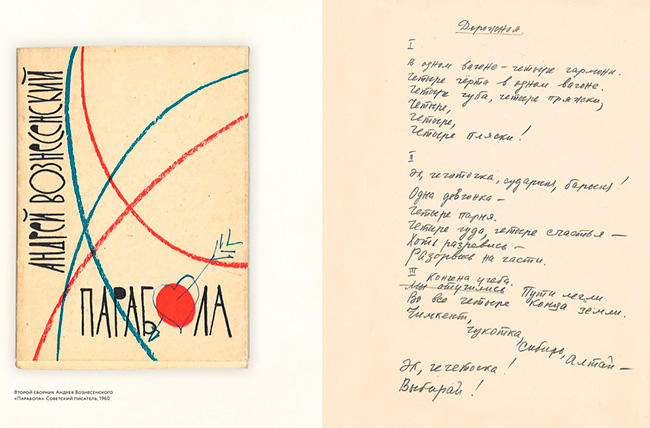 АНДРЕЙ ВОЗНЕСЕНСКИЙ
ПАРАБОЛА
ВТОРОЙ СБОРНИК АНДРЕЯ ВОЗНЕСЕНСКОГО
«ПАРАБОЛА». СОВЕТСКИЙ ПИСАТЕЛЬ, 1960
Дорожная
I
В одном вагоне – четыре гармони.
Четыре чёрта в одном вагоне.
Четыре чуба, четыре пряжки,
Четыре,
четыре,
четыре пляски!
II
Эх, чечёточка, сударыня, барыня!
Одна девчонка –
Четыре парня.
Четыре чуда, четыре счастья –
Хоть разревись –
Разорвись на части.
III Кончена учеба.
Мы отучились Пути легли
Во все четыре конца земли.
Чимкент,
Чукотка,
Сибирь,
Алтай –
Эх, чечёточка!
Выбирай!